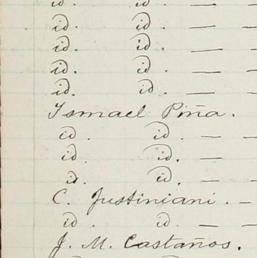 id. id. —
id. id. — —
id. id. — —
id. id. — —
id. id. — —
Ismael Piña.
id. id. — —
id. id. — —
id. id. — —
C. Justiniani. —
id. id. — —
J. M. Castaños.